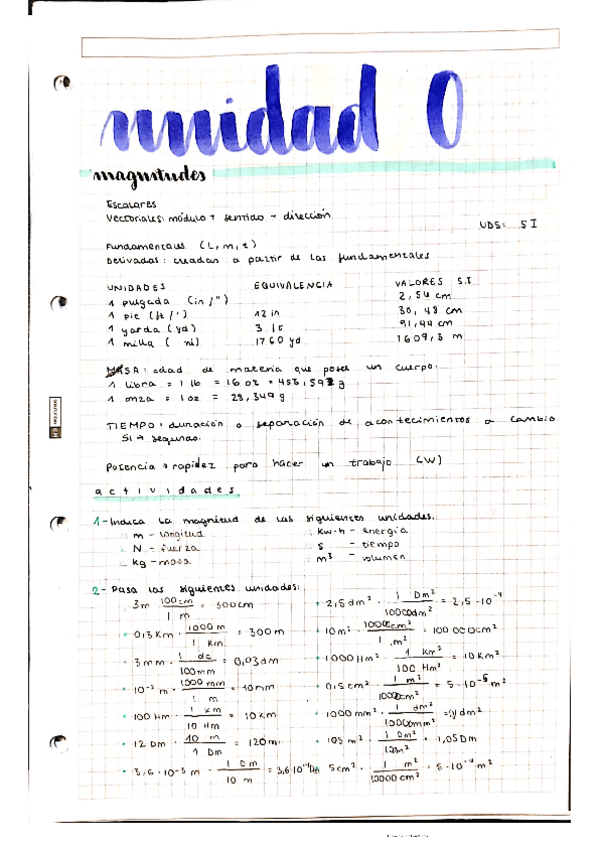 unidad 0
magnitudes
Escalares
Vectoriales: módulo + sentido + dirección
UDS: SI
Fundamentales (L, m, t)
Derivadas: creadas a partir de las fundamentales
UNIDADES EQUIVALENCIA VALORES S.I
1 pulgada (in/") 2,54 cm
1 pie (ft/') 12 in 30,48 cm
1 yarda (yd) 3 91,44 cm
1 milla ( mi) 1760 yd 1609,3 m
MASA: de materia que posee un cuerpo.
1 libra = 1 lb = 16 oz = 453,592 g
1 onza = 1 oz = 28,349 g
TIEMPO: duración o separación de acontecimientos a cambio
SI → segundo.
Potencia → rapidez para hacer un trabajo (W)
actividades
1-Indica la magnitud de las siguientes unidades.
m - longitud
N - fuerza
kg - masa
kw·h - energía
s - tiempo
m³ - volumen
2- Pasa las siguientes unidades:
3m · 100cm / 1 m = 300cm
0,3 Km · 1000 m / 1 Km = 300 m
3mm · 1 / 100mm = 0,03dm
10⁻² m · 1000 mm / 1 m = 10mm
100 Hm · 1 Km / 10 Hm = 10 Km
12 Dm · 10 m / 1 Dm = 120m
3,6·10⁻³ m · 1 Dm / 10 m = 3,6·10⁻⁴ Dm
2,5 dm² · 1 Dm² / 10000dm² = 2,5·10⁻⁴
10m² · 10000cm² / 1 m² = 100 000cm²
1000Hm² · 1 Km² / 100 Hm² = 10 Km²
0,5cm² · 1 m² / 10000cm² = 5·10⁻⁵ m²
1000 mm² · 1 dm² / 10000mm² = dm²
105 m² · 1 Dm² / = 1,05Dm
5cm² · 1 m² / 10000 cm² = 5·10⁻⁴ m²